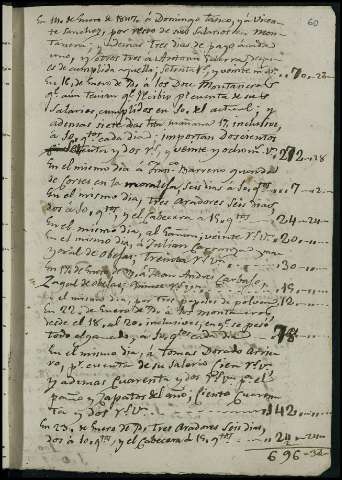 60
En 14 de Enero de 1817 á Domingo y á Vicente
Sanchez, por resto de sus salarios de Mon-
tanera; y demas tres dias de pago
y otros tres á Antonio despues
de cumplida aquella, setenta rs. y veinte mrs. 70-20
En 16, de Enero de Do. á los Doce Montaneros
qe. aun tenian qe. Recibir pr. cuenta de sus
salarios, cumplidos en 10, del actual; y
ademas siete dias hta. mañana 17, inclusive,
á 10, qtos. cada dia; importan Doscientos
setenta y dos rs. y veinte y ocho mrs. Vn. 272-28
En el mismo dia á Franco. Marreno guarda
de Cortes en la moraleja, seis dias á 10, qtos. 17-2
En el mismo dia, tres Aradores seis dias
dos á 10, qtos. y el Cabecera á 15, qtos. 24-24
En el mismo dia, al Gañan, veinte rs. Vn. 20
En el mismo dia, á Julian
zagal de obejas; treinta rs. Vn. 30
En 17, de Enero de Do. á Juan Andres Carbajo,
Zagal de obejas; quince rs. Vn. 15
el mismo dia, por tres de 12
En 22, de Enero de Do. á los montaneros
desde el 18, al 20, inclusives, en qe. se pesó
todo el ganado, á 10, qtos. cada dia 78
En el mismo dia, á Tomas Dorado Arrie-
ro, pr. cuenta de su Salario Cien rs. Vn.
y ademas Cuarenta y dos rs. Vn. pr. el
pan y zapatos del año; Ciento Cuaren-
ta y dos rs. Vn. 142
En 23, de Enero de Do. Tres Aradores Seis dias,
dos á 10, qtos. y el Cabecera á 15, qtos. 24
696-32